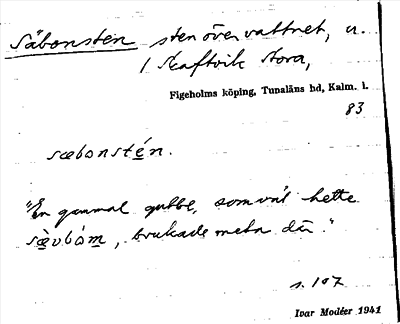 Säbonsten sten över vattnet, u.
/ Skaftvik Stora,
Figeholms köping, Tunaläns hd, Kalm. l.
83
sæbonstén.
"En gammal gubbe, som väl hette
sæ̀vbóm, brukade meta där."
s. 107
Ivar Modéer 1941